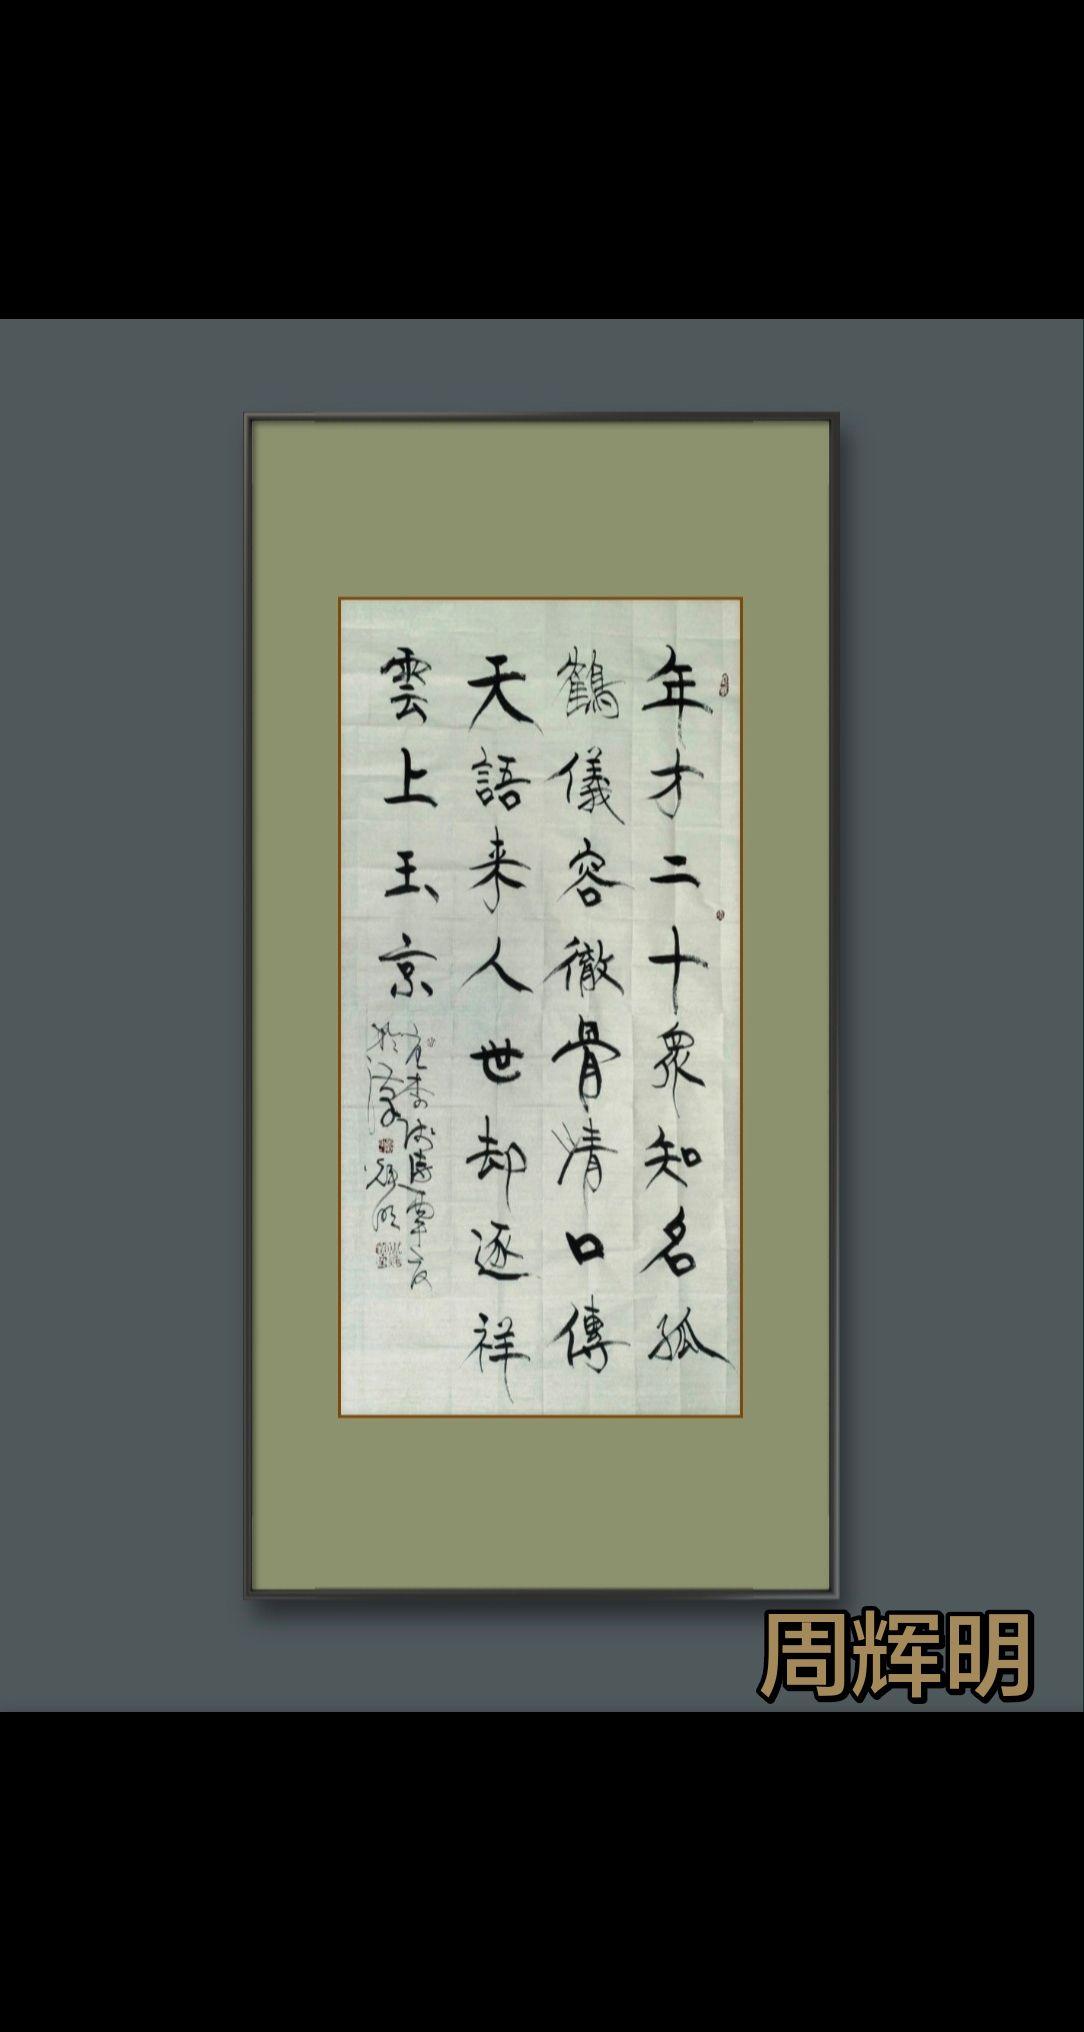 年才二十衆知名孤
鶴儀容徹骨清口傳
天語来人世却逐祥
雲上玉京
周辉明